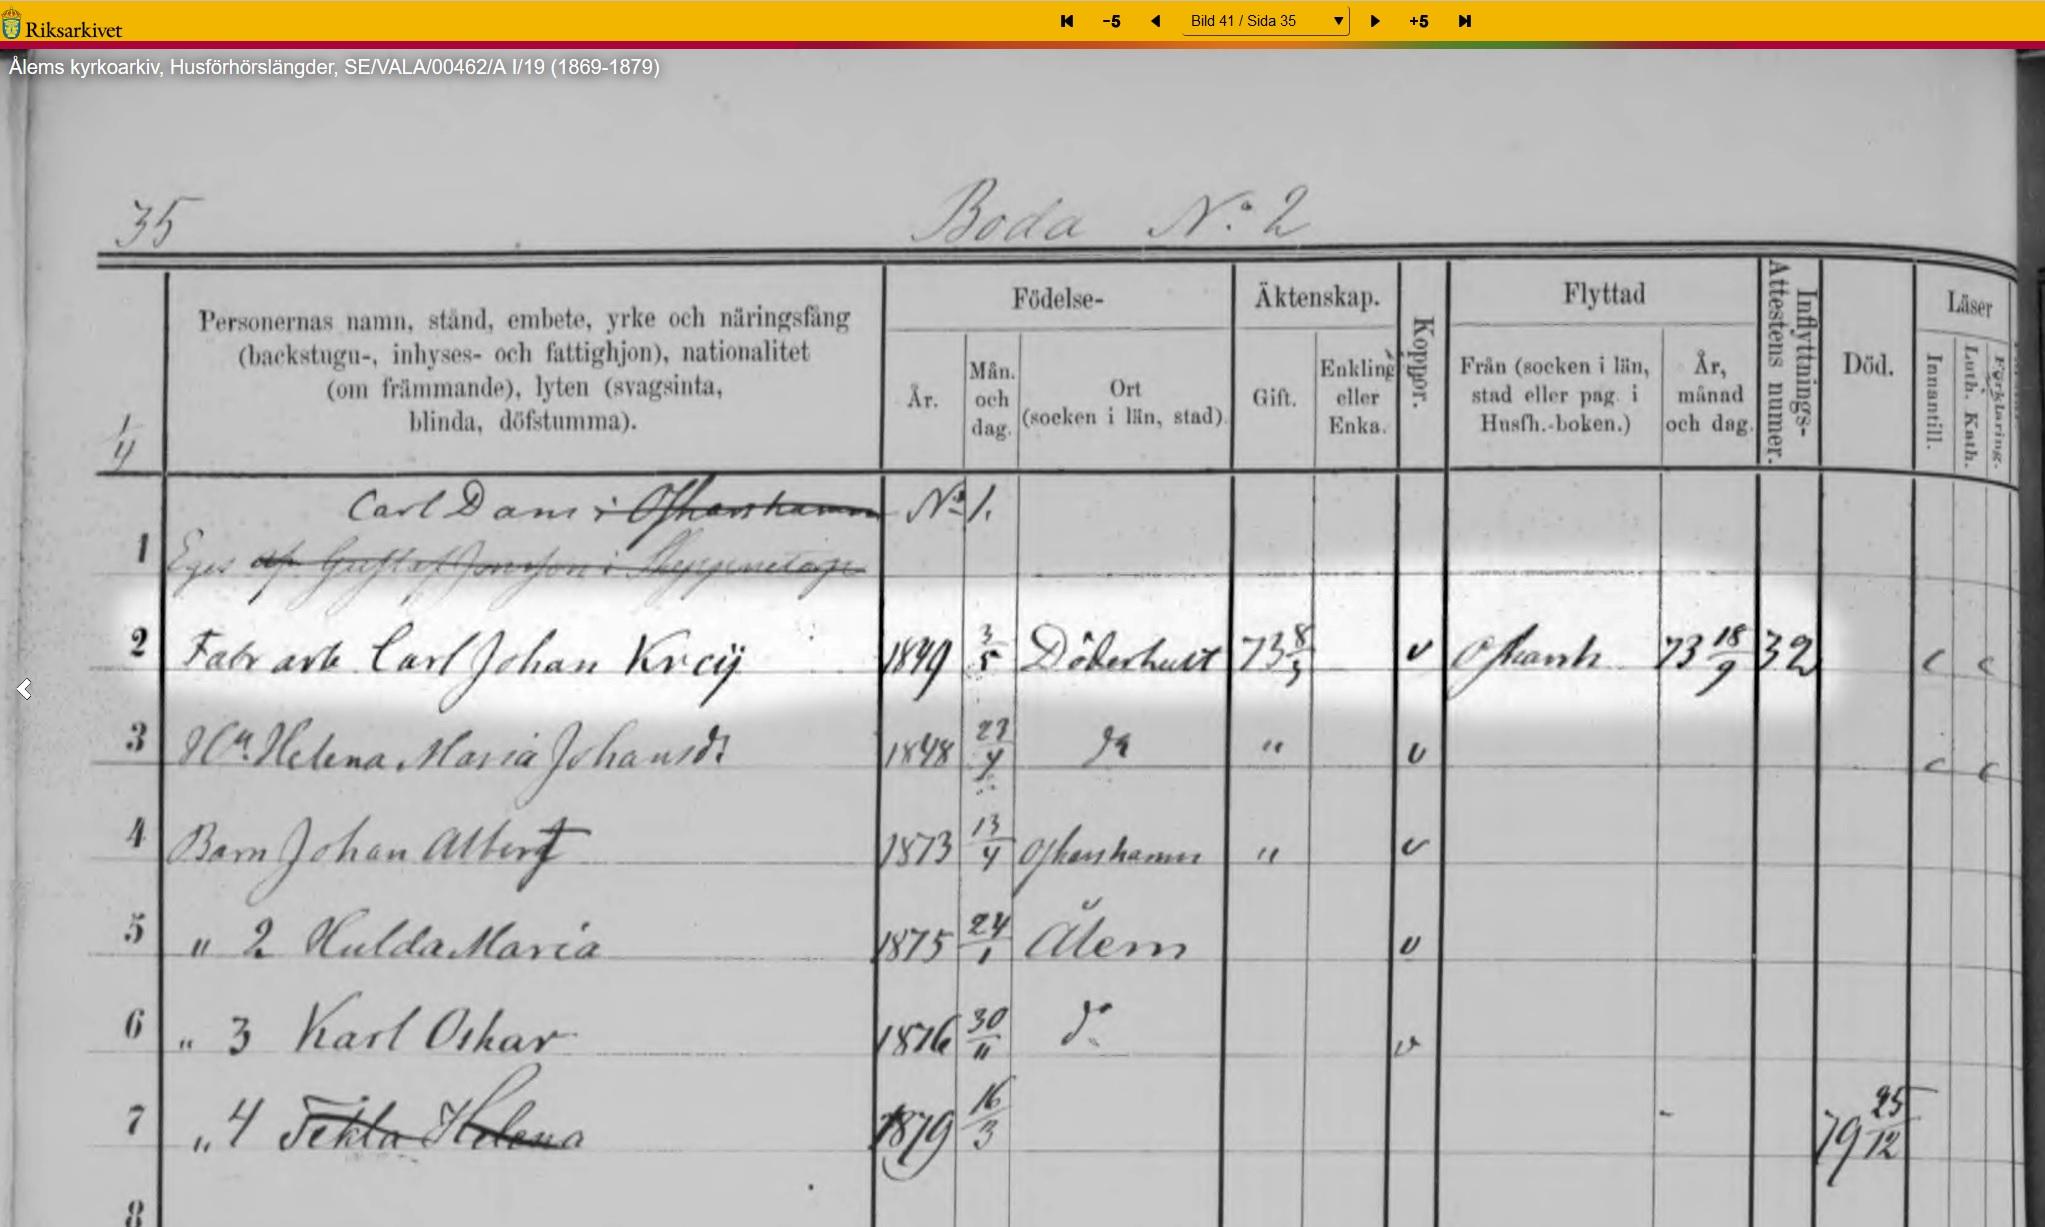 Riksarkivet
−5
Bild 41 / Sida 35
+5
Ålems kyrkoarkiv, Husförhörslängder, SE/VALA/00462/A I/19 (1869-1879)
35 Boda No. 2
Personernas namn, stånd, embete, yrke och näringsfång
(backstugu-, inhyses- och fattighjon), nationalitet
(om främmande), lyten (svagsinta,
blinda, döfstumma).
Födelse-
År.
Mån.
och
dag.
Ort
(socken i län, stad).
Äktenskap.
Gift.
Enkling
eller
Enka.
Koppor.
Flyttad
Från (socken i län,
stad eller pag. i
Husfh.-boken.)
År,
månad
och dag.
Inflyttnings-
Attestens numer.
Död.
Läser
Innantill.
Luth. Kath.
Förklaring.
1/4
Carl Dani i Oskarshamn No 1.
1 Eges af Gustaf Jonsson i
2 Fabr arb Carl Johan Kreij 1849 3/5 Döderhult 73 8/3 v Oskarsh 73 18/9 32 c c
3 Hu. Helena Maria Johansdr 1848 23/4 do " v c c
4 Barn Johan Albert 1873 13/4 Oskarshamn " v
5 " 2 Hulda Maria 1875 24/1 Ålem v
6 " 3 Karl Oskar 1876 30/11 do v
7 " 4 Tekla Helena 1879 16/3 79 25/12
8